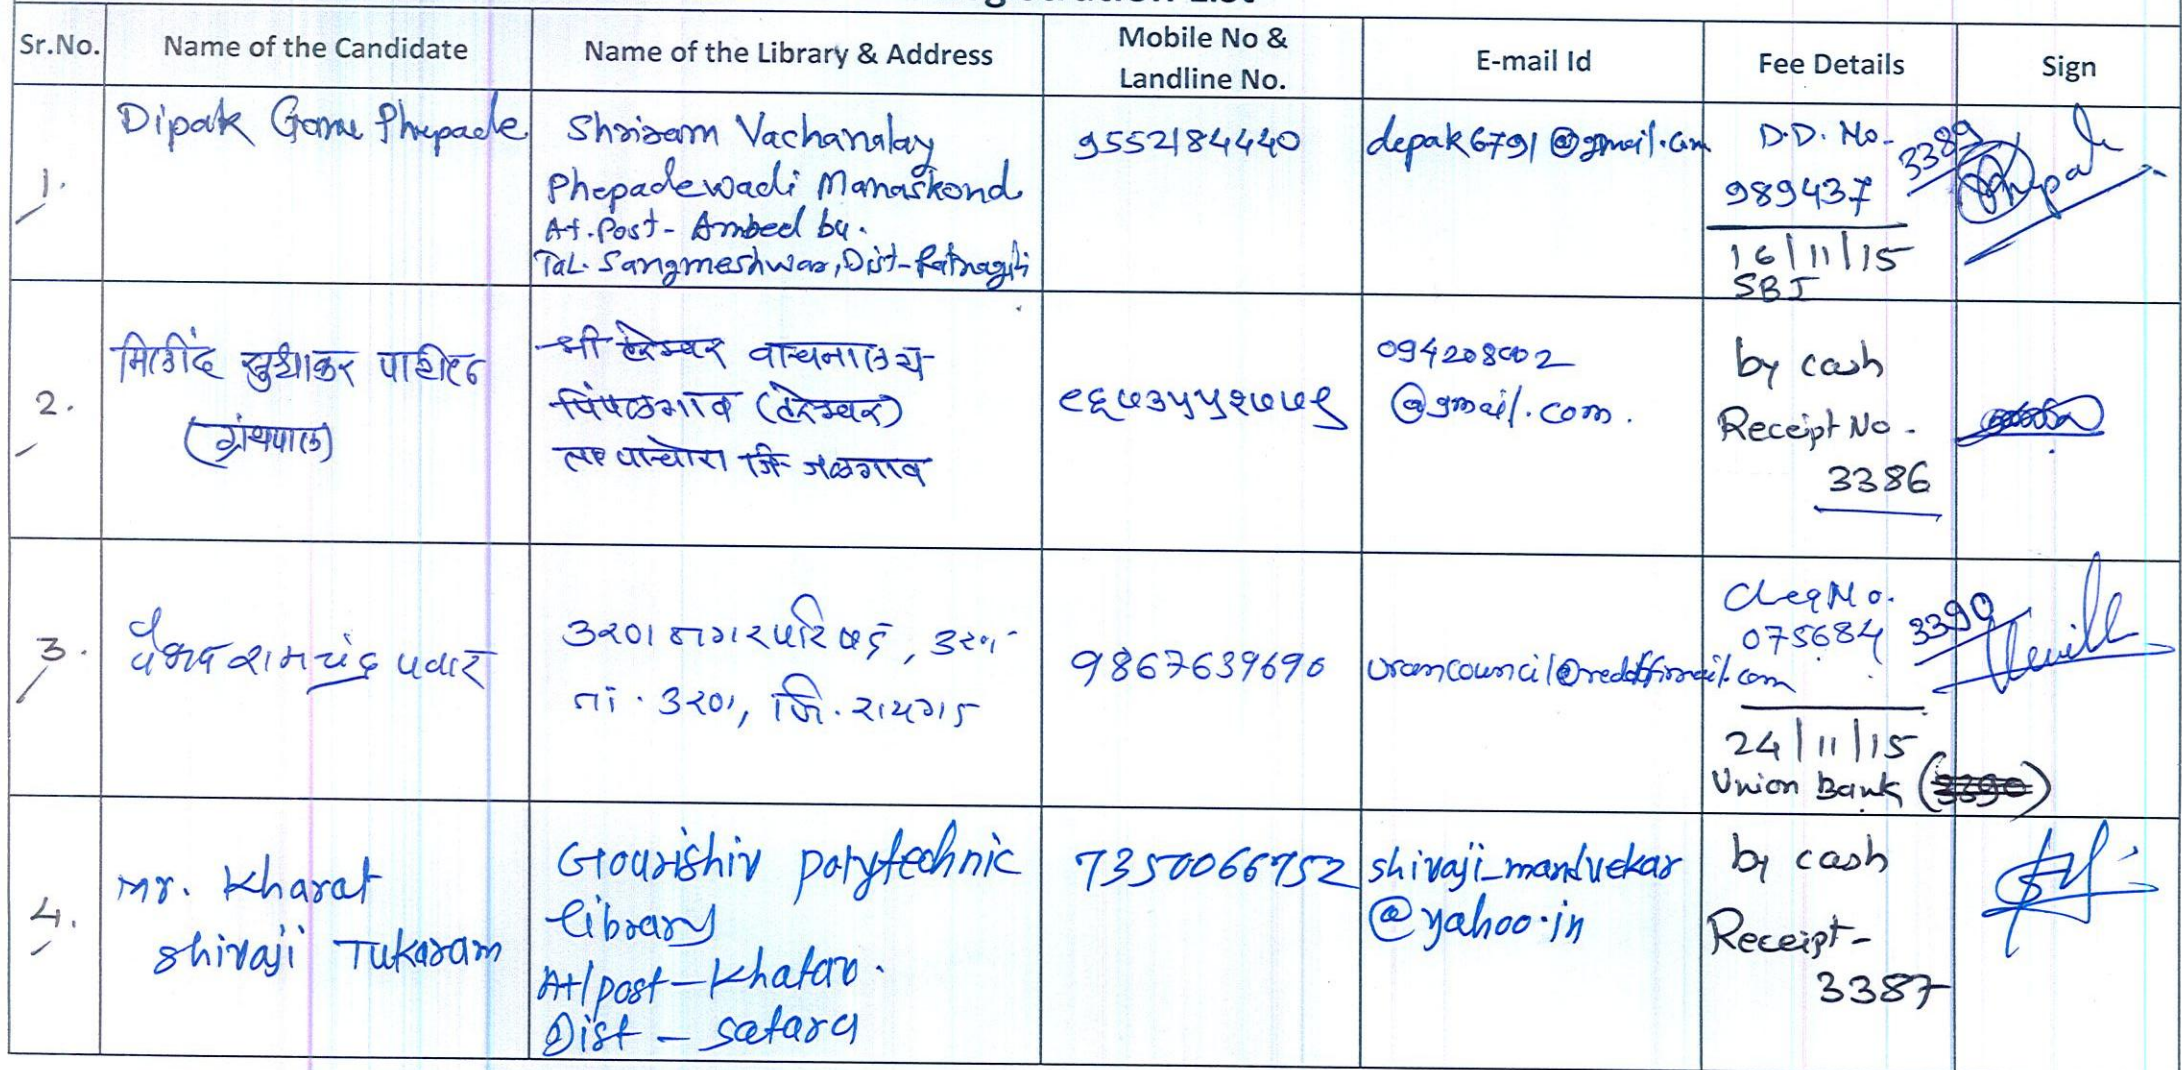 Sr.No. Name of the Candidate Name of the Library & Address Mobile No & Landline No. E-mail Id Fee Details Sign
1. Dipak Phepade
Shriram Vachanalay
Phepadewadi Manaskond
At. Post- Ambed bu.
Tal. Sangmeshwar, Dist-Ratnagiri
9552184440
depak6791@gmail.com
D.D. No-
989437
3389
16/11/15
SBI
2. मिलींद सुधाकर पाटील
(ग्रंथपाल)
श्री हरेश्वर वाचनालय
पिंपळगाव (हरेश्वर)
पाचोरा जि जळगाव
094208002
@gmail.com.
by cash
Receipt No.
3386
3. रामचंद्र पवार
उरण नगरपरिषद, उरण
ता. उरण, जि. रायगड
9867639690
urancouncil@rediffmail.com
Cheq No.
075684
3390
24/11/15
Union Bank (3390)
4. Mr. Kharat
Shivaji Tukaram
Gourishiv polytechnic
library
At/post-Khatav.
Dist - Satara
7350066752
shivaji_mandvekar
@yahoo.in
by cash
Receipt-
3387